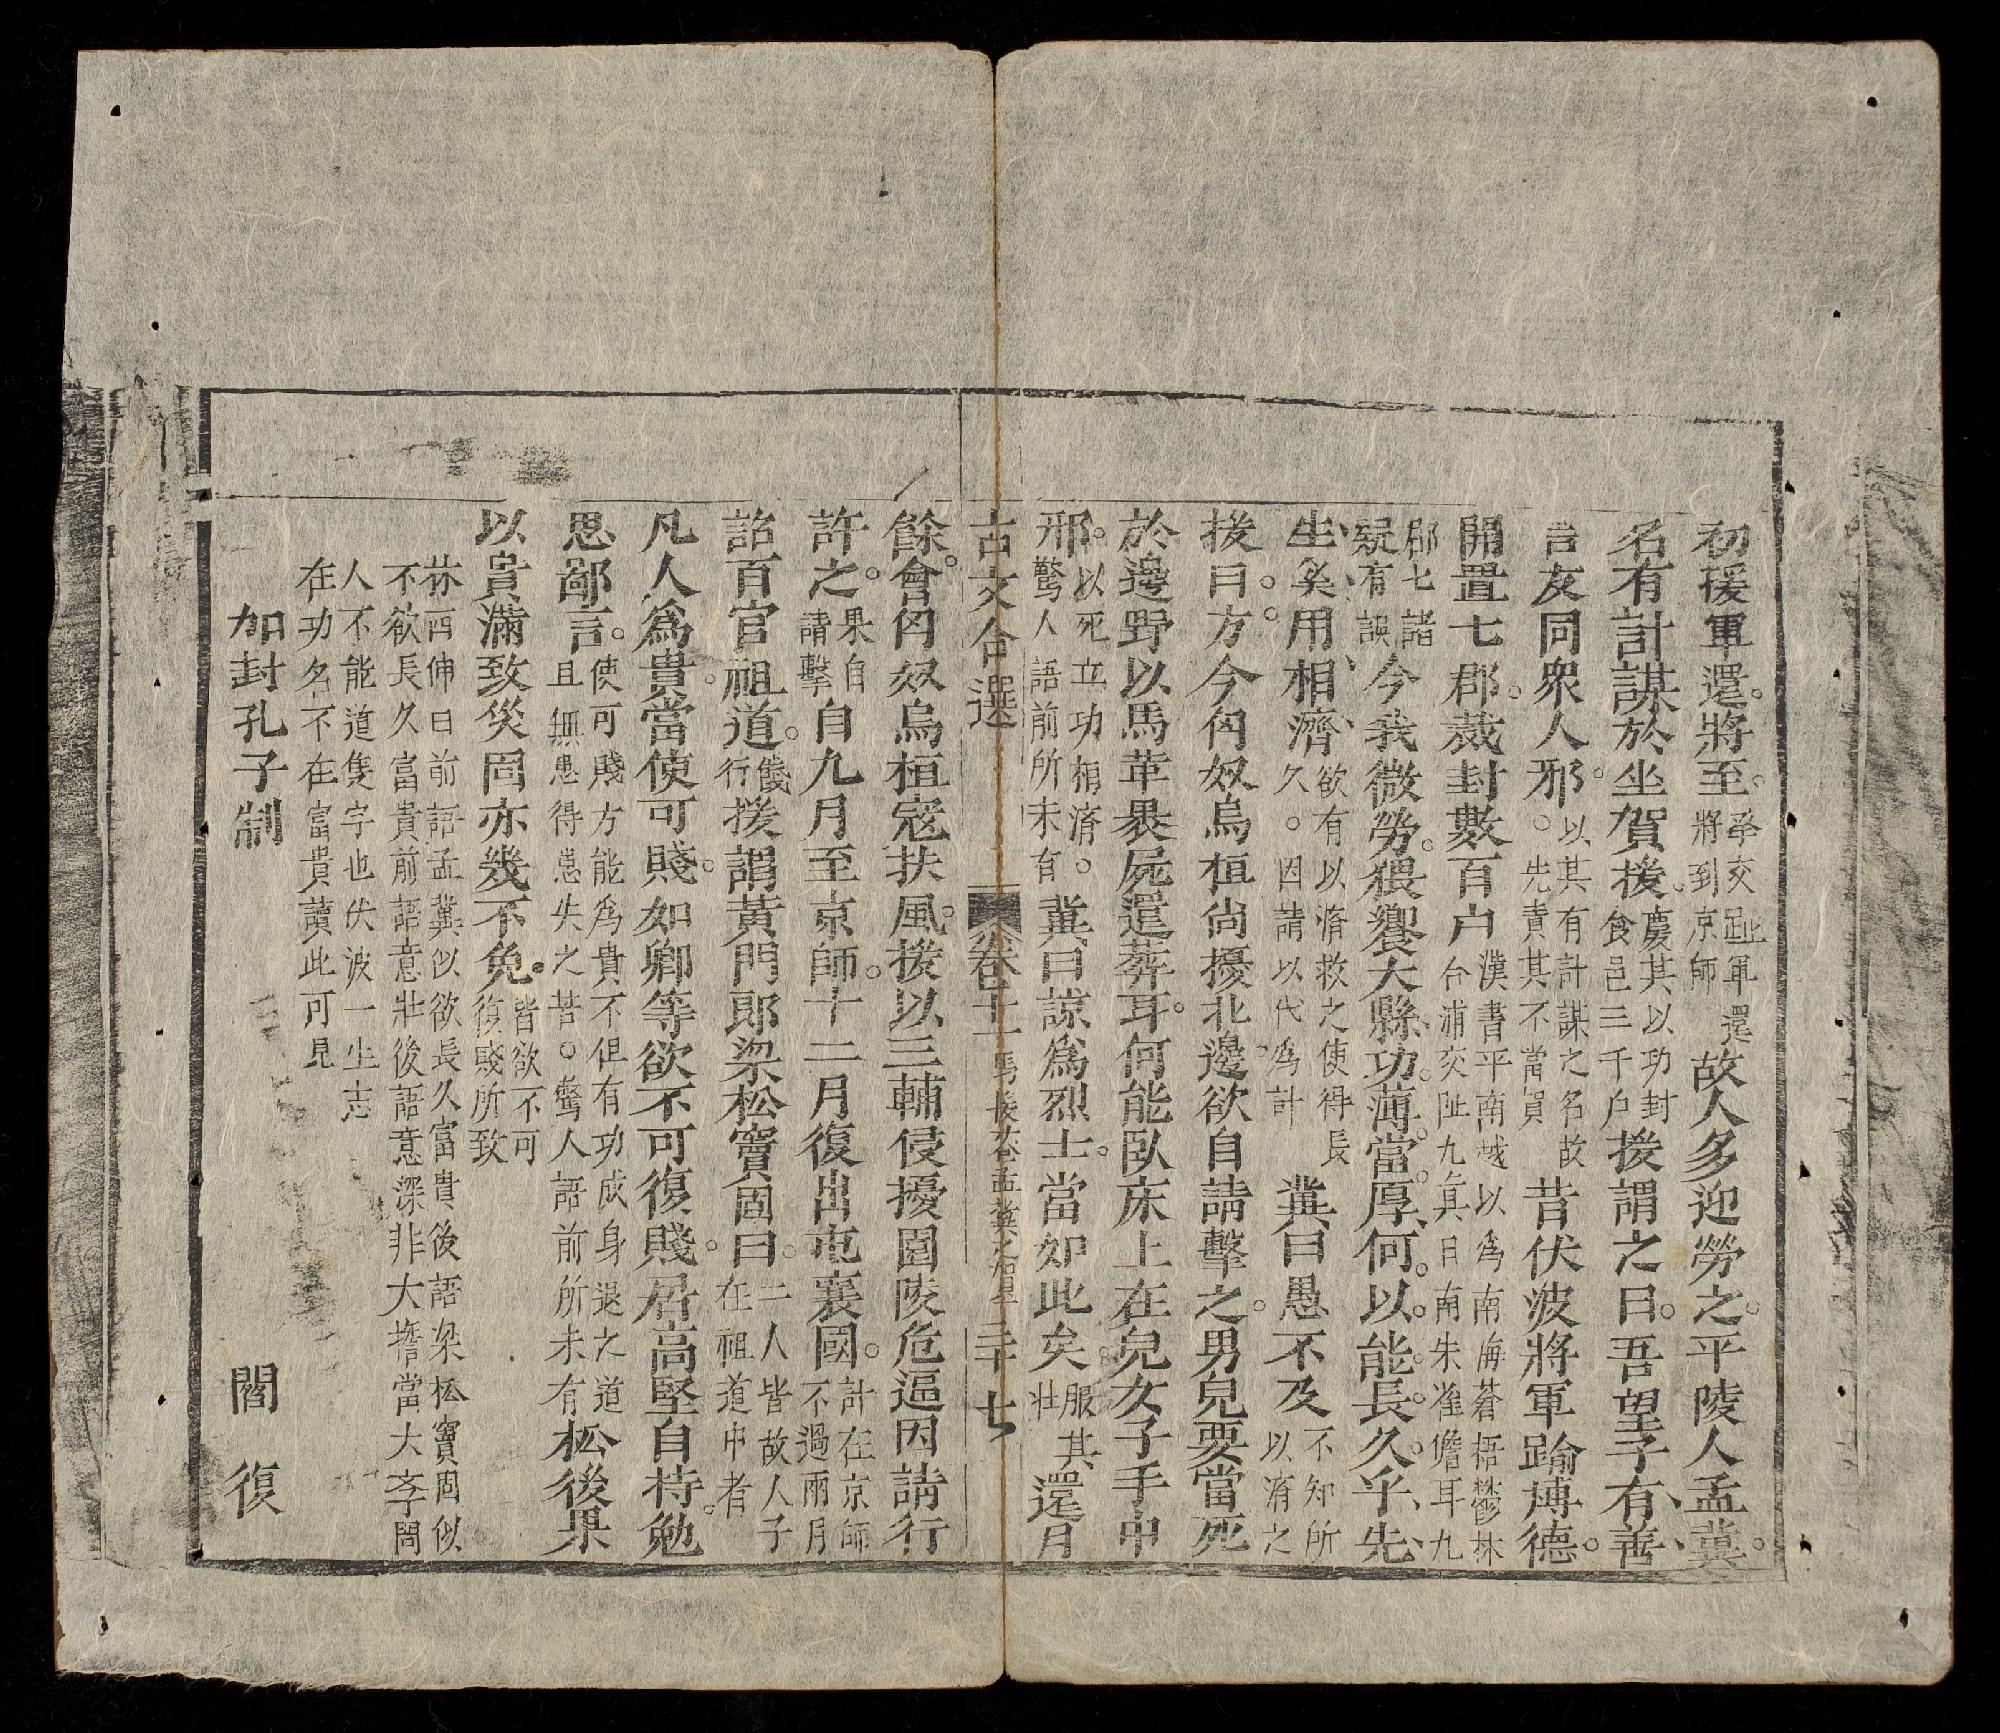 初援軍還。將至。平交趾軍還將到京師故人多迎勞之。平陵人孟冀。
名有計謀。於坐賀援。慶其以功封食邑三千户援謂之曰。吾望子有善
言友同衆人邪。以其有計謀之名故先責其不當賀昔伏波將軍路博德。
開置七郡。裁封數百户漢書平南越以爲南海蒼梧鬱林合浦交阯九真日南朱崖儋耳九
郡七諸疑有誤今我微勞。猥饗大縣。功薄。當厚。何以能長久乎、先
生奚用相濟欲有以濟救之使得長久。因請以代爲計冀曰愚不及不知所以濟之
援曰。方今匈奴烏桓尚擾北邊。欲自請擊之。男兒要當死
於邊野以馬革褁屍還葬耳。何能臥床上在兒女子手中
邪。以死立功相濟。驚人語前所未有冀曰諒爲烈士。當如此矣。服其壯還月
古文合選 卷十二 馬長 孟冀之 二十七
餘。會匈奴烏桓寇扶風。援以三輔侵擾園陵危逼因請行
許之。果自請擊自九月至京師。十二月復出屯襄國。計在京師不過兩月
詔百官祖道。餞行援謂黃門郎梁松竇固曰。二人皆故人子在祖道中者
凡人爲貴。當使可賤。如卿等欲不可復賤。居高堅自持。勉
思鄙言。使可賤方能爲貴不但有功成身退之道且無患得患失之苦。驚人語前所未有松後果
以貴滿致災固亦幾不免。皆欲不可復賤所致
林西仲曰前語孟冀似欲長久富貴後語梁松竇固似
不欲長久富貴前語意壯後語意深非大擔當大學問
人不能道隻字也伏波一生志
在功名不在富貴讀此可見
加封孔子制　閻復